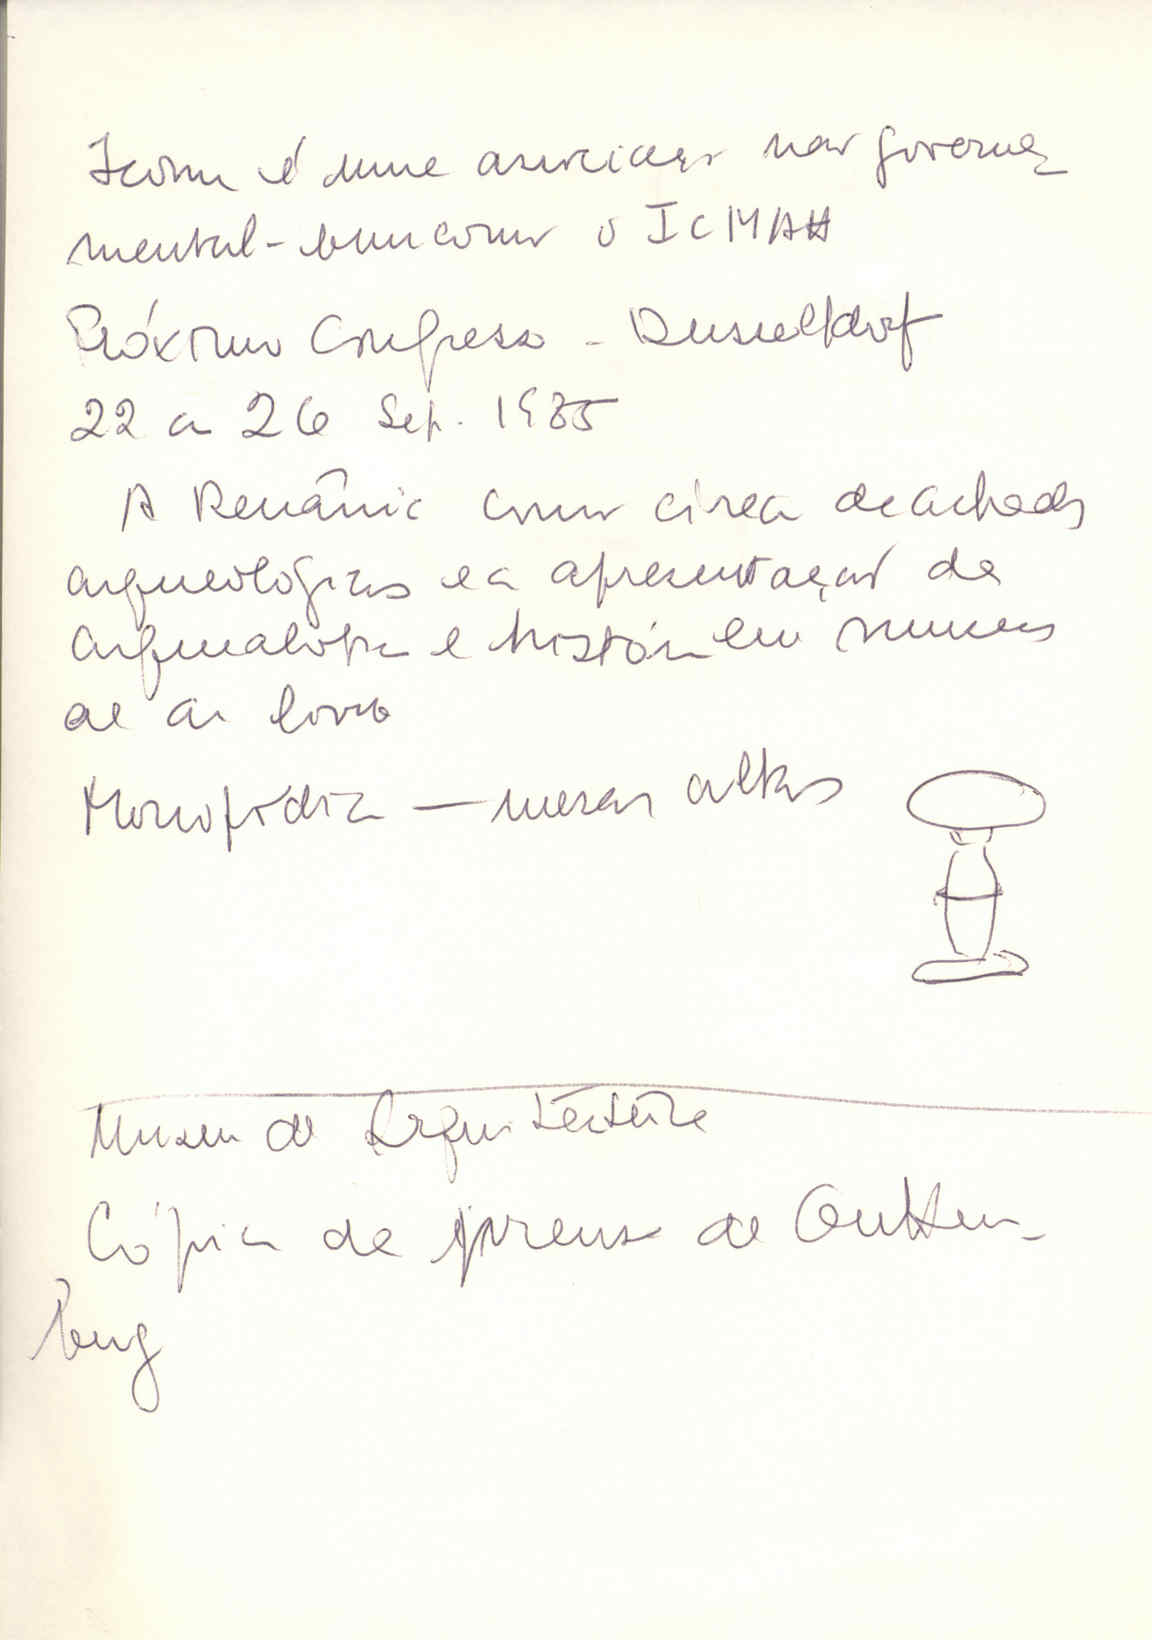 Icom é uma associação não governa
mental - bem como o ICMAH
Próximo Congresso - Dusseldorf
22 a 26 Sep. 1985
A Renânia como área de achados
arqueológicos e a apresentação da
arqueologia e história em museus
de ar livre
Monopódia — mesas altas
Museu de Arquitectura
Cópia da prensa de Guttem-
berg